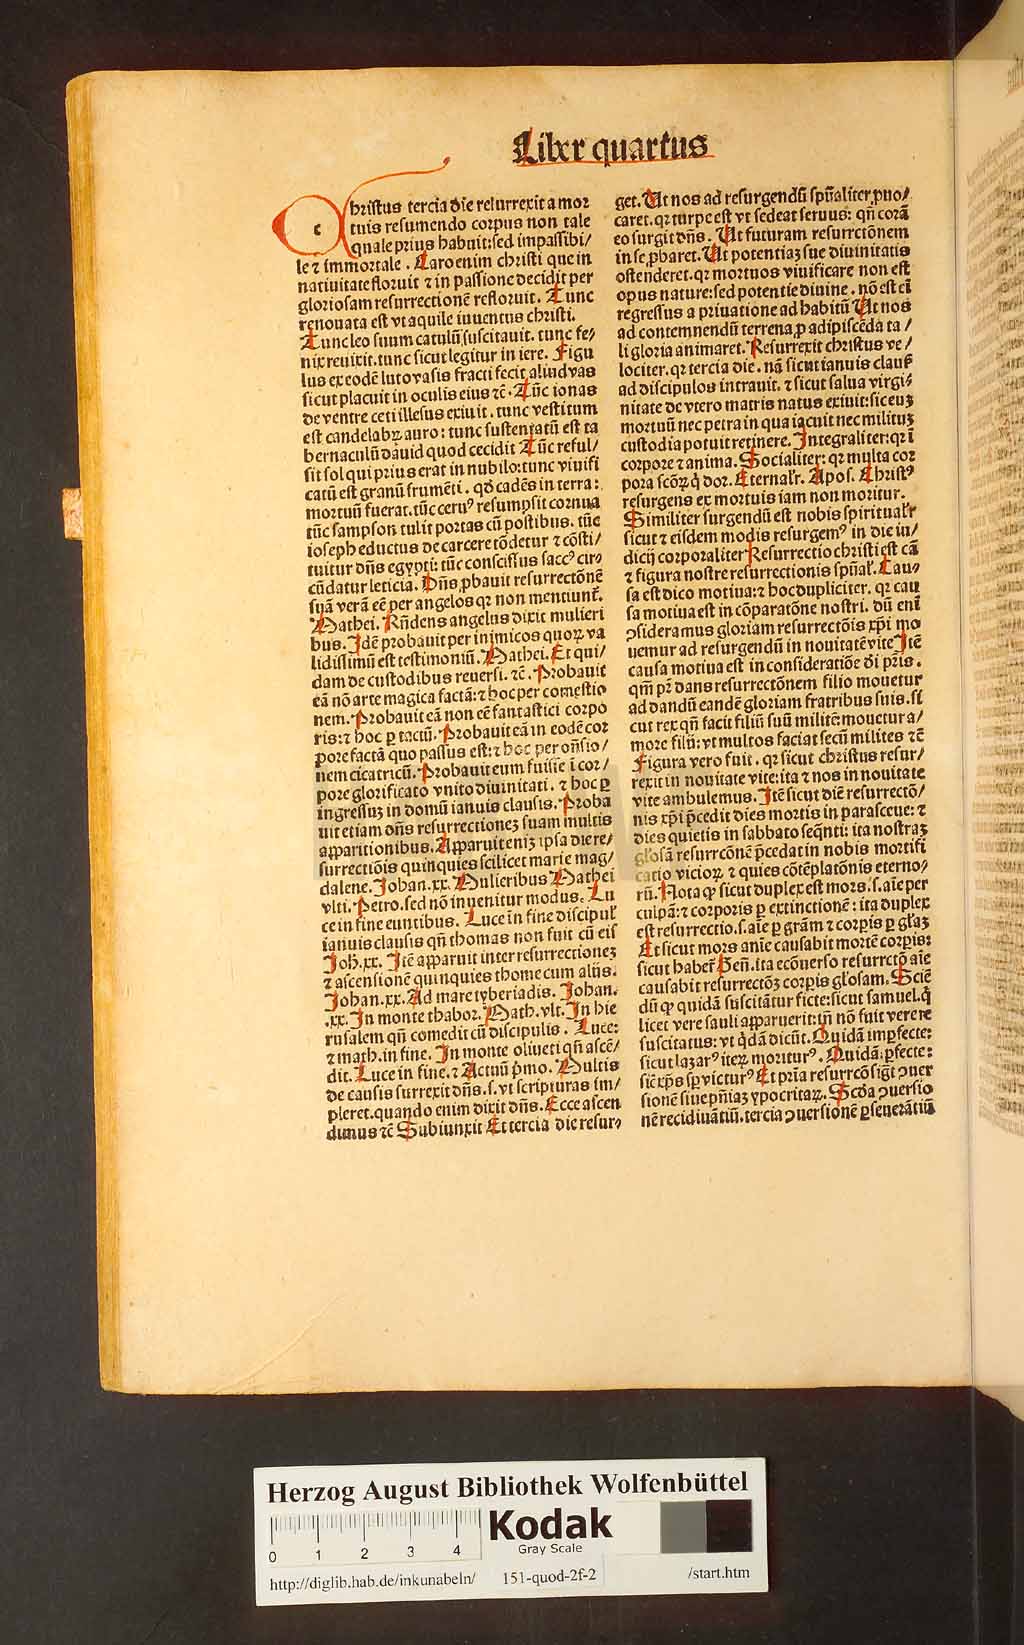 Liber quartus
christus tercia die resurrexit a mor
tuis resumendo corpus non tale
quale prius habuit:sed impassibi/
le ⁊ immortale . Caro enim christi que in
natiuitate floruit ⁊ in passione decidit per
gloriosam resurrectionē refloruit. Tunc
renouata est vt aquile iuuentus christi.
Tunc leo suum catulū suscitauit. tunc fe⸗
nix reuixit.tunc sicut legitur in iere. Figu
lus ex eodē luto vasis fracti fecit aliud vas
sicut placuit in oculis eius ⁊c̄. Tūc ionas
de ventre ceti illesus exiuit. tunc vestitum
est candelabꝝ auro: tunc sustentatū est ta
bernaculū dauid quod cecidit Tūc reful/
sit sol qui prius erat in nubilo:tunc viuifi
catū est granū frumēti. qd̄ cadēs in terra:
mortuū fuerat. tūc ceruꝰ resumpsit cornua
tūc sampson tulit portas cū postibus. tūc
ioseph eductus de carcere tōdetur ⁊ cōsti/
tuitur dn̄s egypti: tūc conscissus saccꝰ cir⸗
cūdatur leticia. Dn̄s ꝓbauit resurrectōnē
suā verā eē per angelos qꝛ non mentiunt̄.
Mathei. Rn̄dens angelus dixit mulieri
bus. Idē probauit per inimicos quoꝝ va
lidissimū est testimoniū. Mathei. Et qui/
dam de custodibus reuersi. ⁊c̄. Probauit
eā nō arte magica factā: ⁊ hoc per comestio
nem. Probauit eā non eē fantastici corpo
ris: ⁊ hoc ꝑ tactū. Probauit eā in eodē cor
pore factā quo passus est: ⁊ hoc per on̄sio/
nem cicatricū. Probauit eum fuisse ī cor/
pore glorificato vnito diuinitati. ⁊ hoc ꝑ
ingressuꝫ in domū ianuis clausis. Proba
uit etiam dn̄s resurrectioneꝫ suam multis
apparitionibus. Apparuit eniꝫ ipsa die re/
surrectiōis quinquies scilicet marie mag/
dalene. Johan.xx. Mulieribus Mathei
vlti. Petro. sed nō inuenitur modus. Lu
ce in fine euntibus. Luce in fine discipul̄
ianuis clausis qn̄ thomas non fuit cū eis
Joh̄.xx. Itē apparuit inter resurrectioneꝫ
⁊ ascensionē quinquies thome cum alijs.
Johan.xx. Ad mare tyberiadis. Johan.
.xx. In monte thabor. Math.vlt. In hie
rusalem qn̄ comedit cū discipulis . Luce:
⁊ math.in fine. In monte oliueti qn̄ ascē/
dit. Luce in fine. ⁊ Actuū p̄mo. Multis
de causis surrexit dn̄s. s. vt scripturas im/
pleret. quando enim dixit dn̄s. Ecce ascen
dimus ⁊c̄ Subiunxit Et tercia die resur⸗
get. Ut nos ad resurgendū spūaliter ꝓuo/
caret. qꝛ turpe est vt sedeat seruus: qn̄ corā
eo surgit dn̄s. Ut futuram resurrctōnem
in se ꝓbaret. Ut potentiaꝫ sue diuinitatis
ostenderet. qꝛ mortuos viuificare non est
opus nature: sed potentie diuine. nō est eī
regressus a priuatione ad habitū Ut nos
ad contemnendū terrena ꝓ adipiscēda ta /
li gloria animaret. Resurrexit christus ve /
lociter. qꝛ tercia die. nā sicut ianuis clausꝭ
ad discipulos intrauit. ⁊ sicut salua virgi⸗
nitate de vtero matris natus exiuit: sic euꝫ
mortuū nec petra in qua iacuit nec milituꝫ
custodia potuit retinere. Integraliter: qꝛ ī
corpore ⁊ anima. Socialiter: qꝛ multa cor
pora scōꝝ q̄ dor. Eternal'r. Apos. Christꝰ
resurgens ex mortuis iam non moritur.
Similiter surgendū est nobis spiritual'r
sicut ⁊ eisdem modis resurgemꝰ in die iu/
dicij corporaliter Resurrectio christi est cā
⁊ figura nostre resurrectionis spūal'. Cau⸗
sa est dico motiua: ⁊ hoc dupliciter. qꝛ cau
sa motiua est in cōparatōne nostri. dū enī
ꝯsideramus gloriam resurrectōis xp̄i mo
uemur ad resurgendū in nouitatē vite Itē
causa motiua est in consideratiōe dī pr̄is.
qm̄ pr̄ dans resurrectōnem filio mouetur
ad dandū eandē gloriam fratribus suis. si
cut rex qn̄ facit filiū suū militē mouetur a/
more filij: vt multos faciat secū milites ⁊c̄
Figura vero fuit. qꝛ sicut christus resur/
rexit in nouitate vite: ita ⁊ nos in nouitate
vite ambulemus. Itē sicut diē resurrectō/
nis xp̄i p̄cedit dies mortis in parasceue: ⁊
dies quietis in sabbato seq̄nti: ita nostraꝫ
gl'osā resurrcōnē p̄cedat in nobis mortifi
catio vicioꝝ ⁊ quies cōtēplatōnis eterno⸗
rū. Nota ꝙ sicut duplex est mors. s. aīe per
culpā: ⁊ corporis ꝑ extinctionē: ita duplex
est resurrectio. s. aīe ꝑ grām ⁊ corꝑis ꝑ gl'aꝫ
Et sicut mors anīe causabit mortē corꝑis:
sicut haber̄ Gen̄. ita ecōuerso resurrctō aīe
causabit resurrectōꝫ corꝑis gl'osam. Sciē
dū ꝙ quidā suscitātur ficte: sicut samuel. q̄
licet vere sauli apparuerit: tn̄ nō fuit vere re
suscitatus: vt q̄dā dicūt. Quidā imꝑfecte:
sicut lazarꝰ iteꝝ moriturꝰ. Quidā. ꝑfecte:
sic xp̄s sꝑ victurꝰ Et prīa resurrcō siḡt ꝯuer
sionē siue pn̄iaꝫ ypocritaꝝ. Scd̄a ꝯuersio
nē recidiuātiū. tercia ꝯuersionē ꝑseuerātiū
Herzog August Bibliothek Wolfenbüttel
0 1 2 3 4
Kodak
Gray Scale
http://diglib.hab.de/inkunabeln/ 151-quod-2f-2 /start.htm